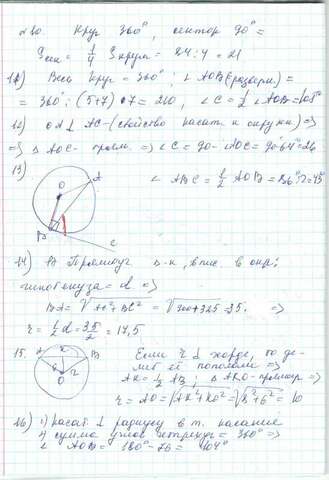 №10. Круг 360°, сектор 90° =
Sсек = 1/4 Sкруга = 84 : 4 = 21
11) Весь круг = 360°; ∠AOB (разверн.) =
= 360° : (5+7) · 7 = 210, ∠C = 1/2 ∠AOB = 105°
12) OA ⊥ AC – (свойство касат. к окружн) ⇒
⇒ △ AOC – прям. ⇒ ∠C = 90 - ∠AOC = 90 - 64 = 26
13)
∠ ABC = 1/2 AOB = 86° : 2 = 43°
O
A
B
C
14) В прямоуг
гипотенуза = d ⇒
BA = √AC² + BC² = = 35. ⇒
r = 1/2 d = 35/2 = 17,5
15.
A K B
6 r
O
Если r ⊥ хорде, то де-
лит её пополам ⇒
AK = 1/2 AB; △ AKO – прямоуг ⇒
r = AO = √AK² + KO² = √8² + 6² = 10
16) 1) касат ⊥ радиусу в т. касания
2) сумма углов четыреуг = 360° ⇒
∠ AOB = 180° - 76 = 104°